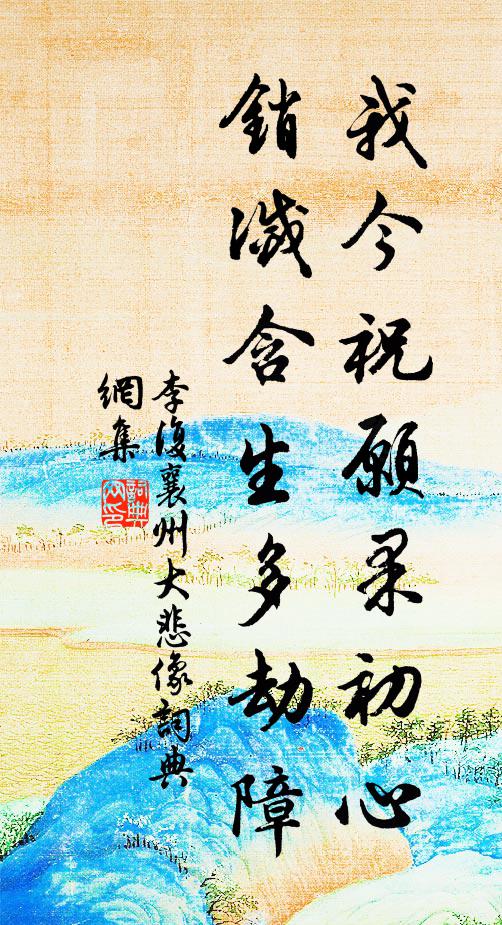 我今祝願果初心
銷滅含生多劫障
李復襄州大悲像詞典
網集
詞典